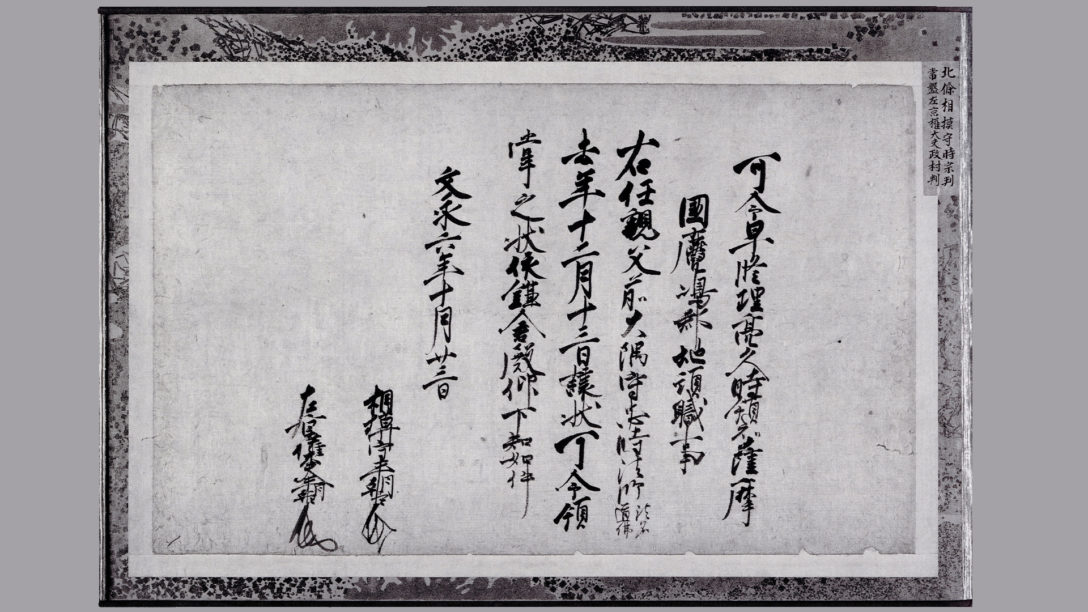 北條相摸守時宗判
常盤左京權大夫政村判
可令早修理亮久時領知薩摩
國麑嶋郡地頭職事
右任親父前大隅守忠時法師法名道佛
去年十二月十三日譲状可令領
掌之状依鎌倉殿仰下知如件
文永六年十月廿三日
相模守平朝臣
左京權大夫平朝臣